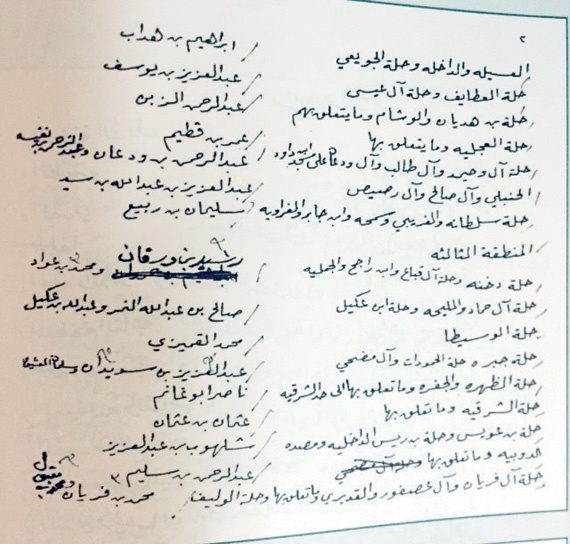 ٢
العسيله والداخله وحلة الجويعي / ابراهيم بن هداب
حلة العطايف وحلة آل عيسى / عبدالعزيز بن يوسف
حلة بن هديان والوشام وما يتعلق بهم / عبدالرحمن الزبن
حلة العجليه وما يتعلق بها / عمر بن قطيم
حلة آل وحيمر وآل طالب وآل ودعان على مسجد ابن داود / عبدالرحمن بن ودعان وعبدالرحمن بن نفيسه
الحنبلي وآل صالح وآل رصيص / عبدالعزيز بن عبدالله بن سيد
حلة سلطانه والغريبي وسمحه وابن جابر والغراويه / سليمان بن ربيع
المنطقة الثالثه
حلة دخنه وحلة آل قباع وابن راجح والجمليه / رشيد بن ورقان ومحمد بن عواد
حلة آل حماد والمليحه وحلة ابن عكيل / صالح بن عبدالله النمر وعبدالله بن عكيل
حلة الوسيطا / محمد القميزي
حلة جبره حلة الحمودات وآل مضحي / عبدالعزيز بن سويدان
حلة الظهره والجفره وما تعلق بها الى حد الشرقيه / ناصر ابو غانم
حلة الشرقيه وما تعلق بها / عثمان بن عثمان
حلة بن عويس وحلة بن ريس الداخليه ومصده / شلهوب بن عبدالعزيز
حلة وما تعلق بها / عبدالرحمن بن سليم ٣
حلة آل فريان وآل عصفور والقديري وما تعلق بها وحلة الوليف / محمد بن فريان